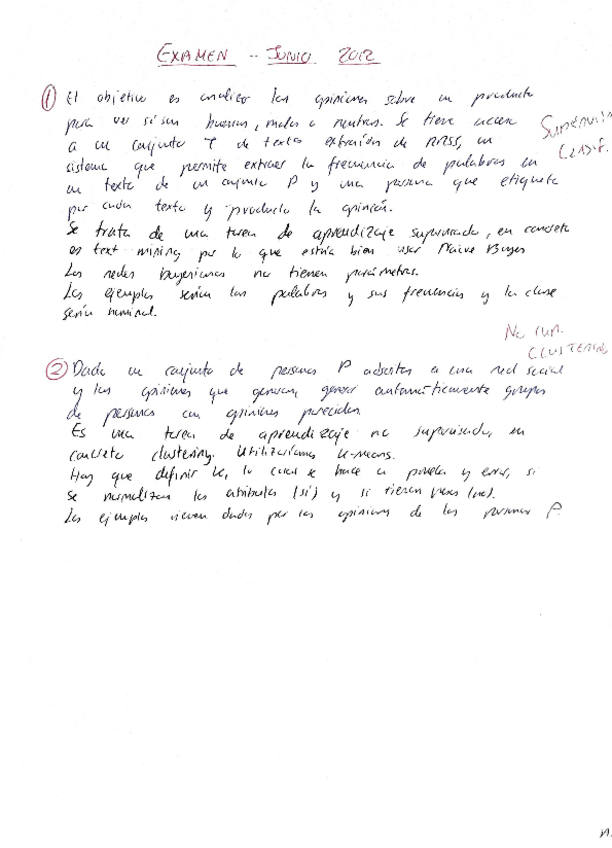 EXAMEN -- JUNIO 2012
① El objetivo es analizar las opiniones sobre un producto
para ver si son buenas, malas o neutras. Se tiene acceso
a un conjunto T de textos extraídos de RRSS, un
sistema que permite extraer la frecuencia de palabras en
un texto de un conjunto P y una persona que etiqueta
por cada texto y producto la opinión.
Se trata de una tarea de aprendizaje supervisado, en concreto
es text mining por lo que estaría bien usar Naive Bayes
Las redes bayesianas no tienen parámetros.
Los ejemplos serían las palabras y sus frecuencias y la clase
sería nominal.
② Dado un conjunto de personas P adscritas a una red social
y las opiniones que generan, generar automáticamente grupos
de personas con opiniones parecidas.
Es una tarea de aprendizaje no supervisado, en
concreto clustering. Utilizaríamos K-means.
Hay que definir k, lo cual se hace a prueba y error, si
se normalizan los atributos (sí) y si tienen pesos (no).
Los ejemplos vienen dados por las opiniones de las personas P.
CLUSTERING